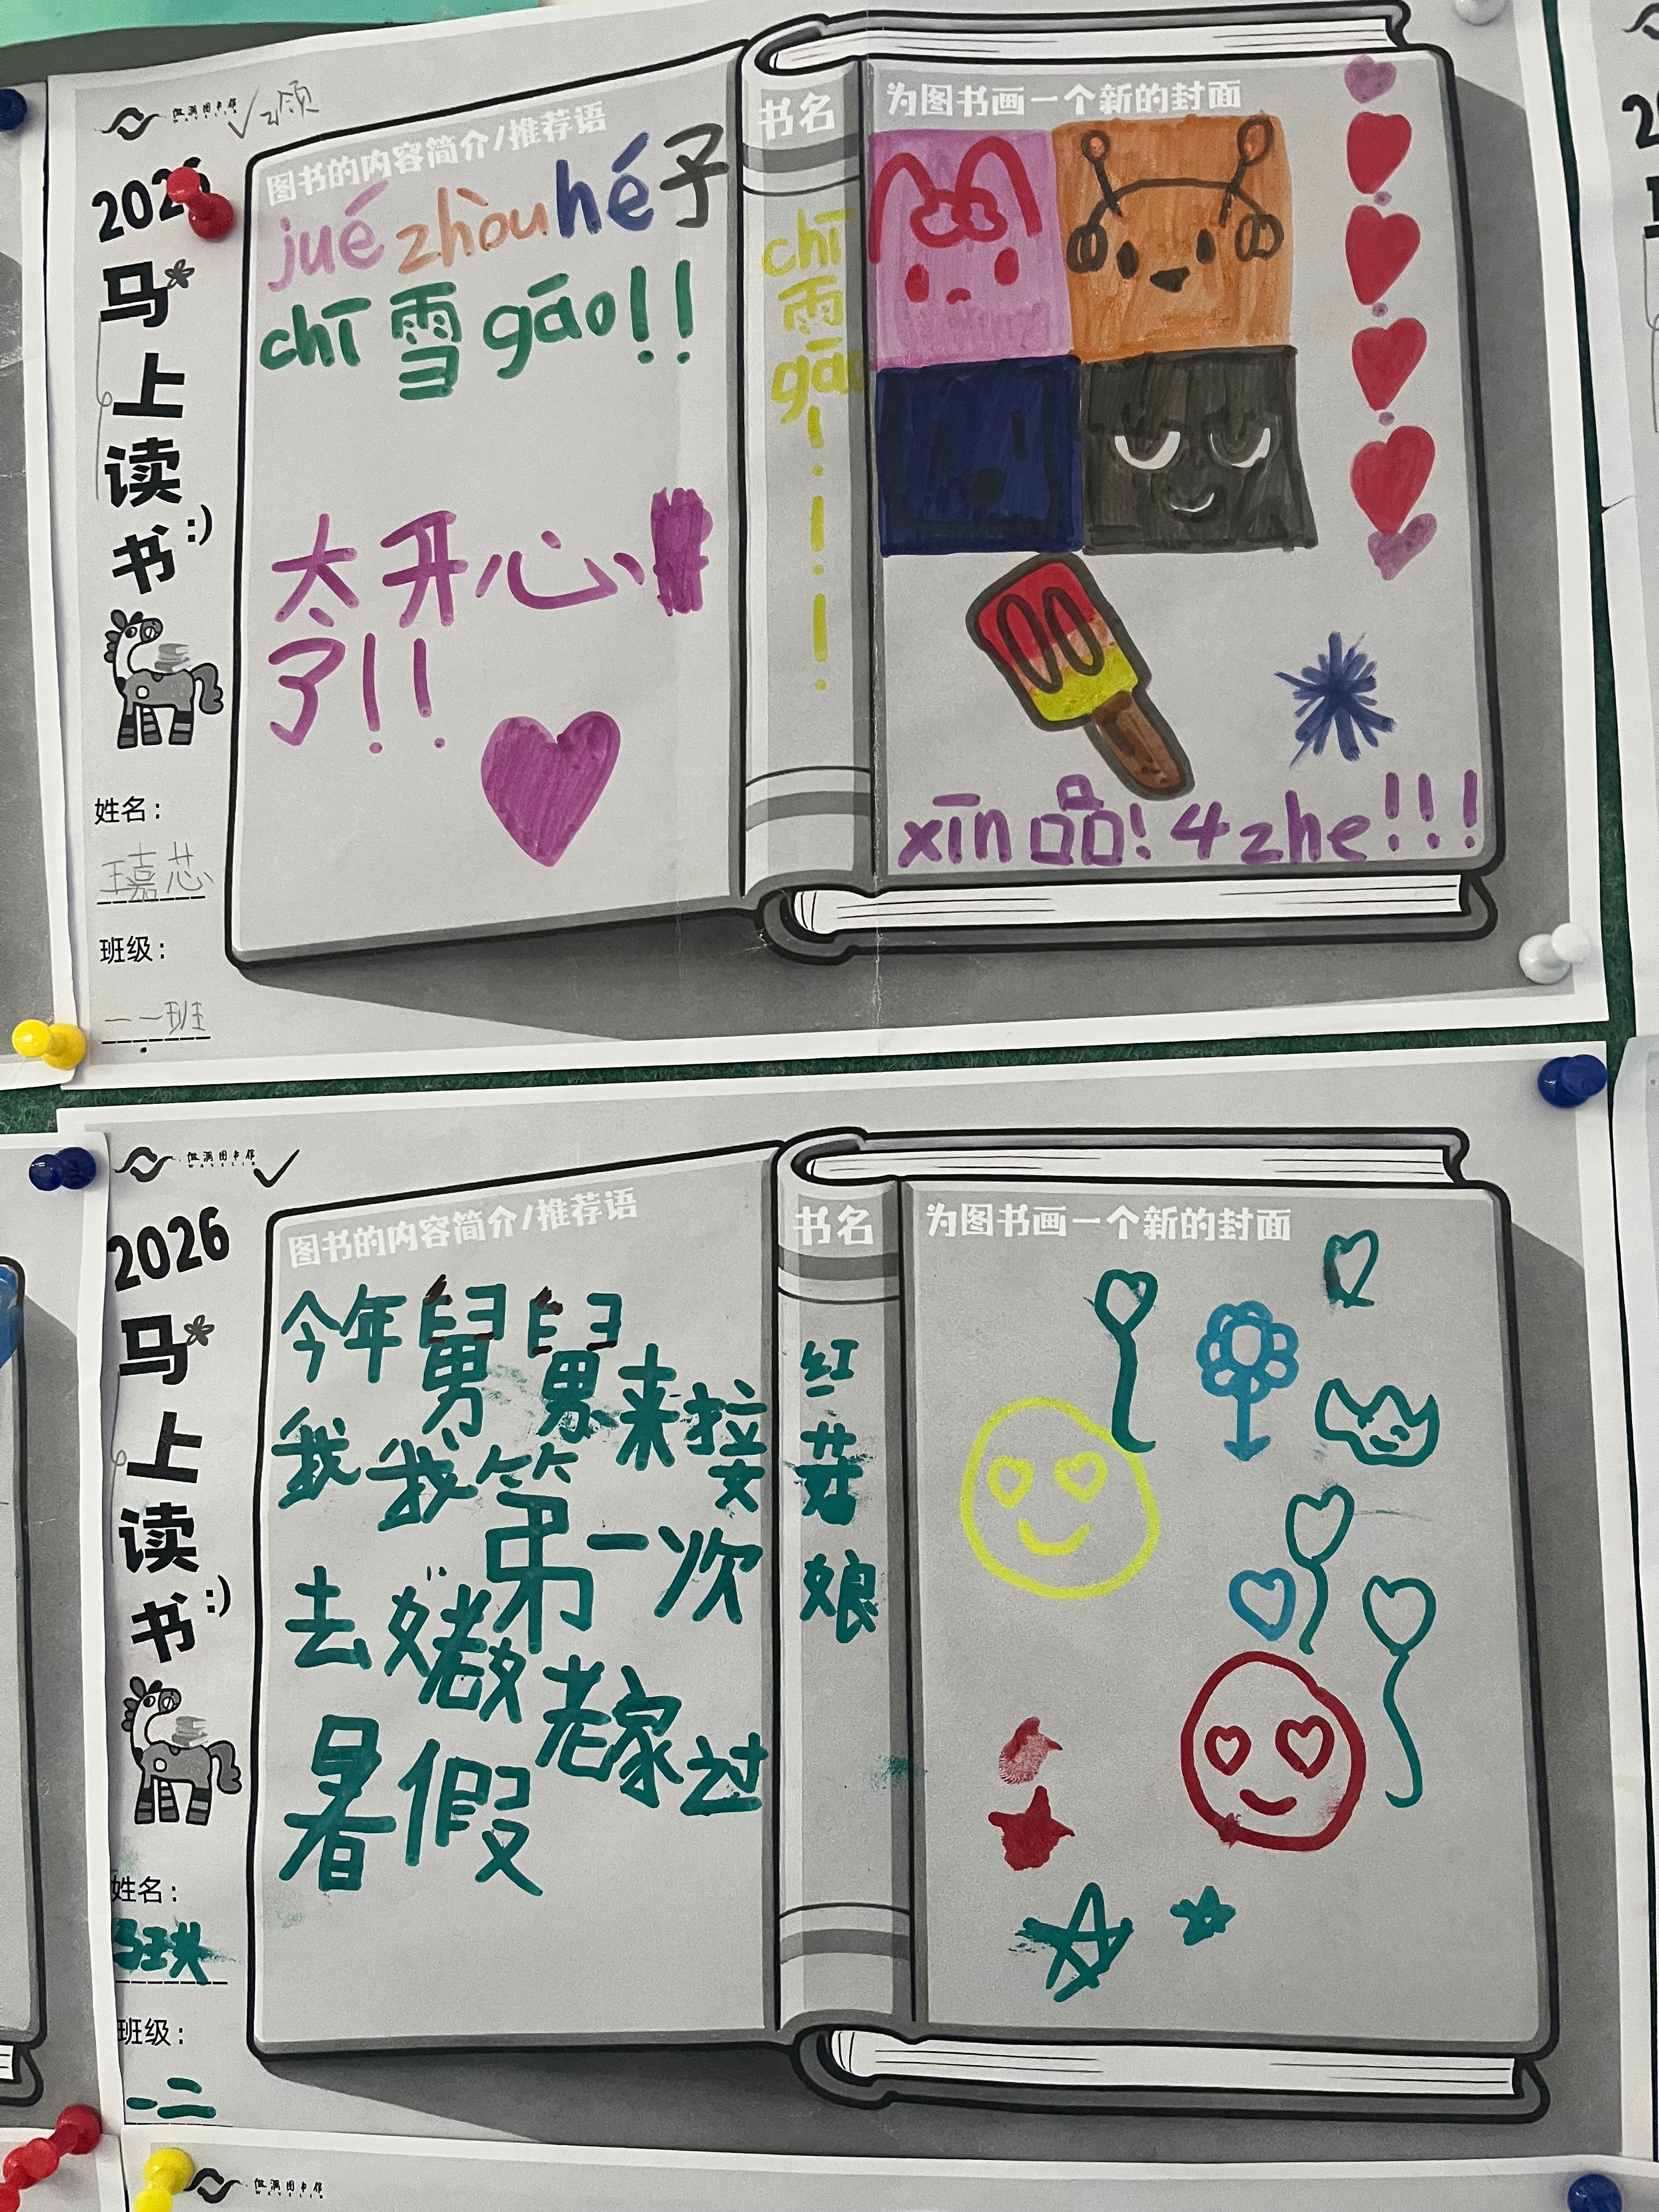 √已领
2026
马
上
读
书:)
姓名:
王嘉芯
班级:
一一班
图书的内容简介/推荐语
jué zhòu hé 子
chī 雪 gāo!!
太开心
了!!
书名
chī
雨
gāo
!
!
!
为图书画一个新的封面
xīn 品! 4 zhe!!!
WAVELIB
2026
马
上
读
书:)
姓名:
班级:
一二
图书的内容简介/推荐语
今年舅舅来接
我我第一次
去姥姥老家过
暑假
书名
红
姑
娘
为图书画一个新的封面
WAVELIB